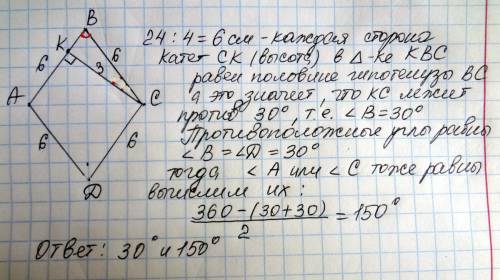 B
K
6
6
3
A
C
6
6
D
24 : 4 = 6 см - каждая сторона
Катет СК (высота) в Δ-ке КВС
равен половине гипотенузы ВС
а это значит, что КС лежит
против 30°, т.е. ∠B = 30°
Противоположные углы равны
∠B = ∠D = 30°
тогда ∠A или ∠C тоже равны
вычислим их:
360 - (30 + 30) / 2 = 150°
Ответ: 30° и 150°